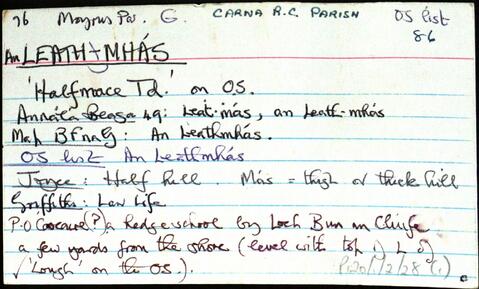 76 Moyrus Par. G. CARNA R.C. PARISH OS list
86
An LEATH-MHÁS
'Halfmace Td.' on OS.
Annála Beaga 49: Leat-más, an Leath-mhás
Map BFnaG: An Leathmhás.
OS list An Leathmhás
Joyce: Half hill. Más = thigh or thick hill
Griffiths: Law Life
P. O (?) a hedge school by Loch Bun an
a few yards from the shore (level with top of L of
√ 'Lough' on the OS.).